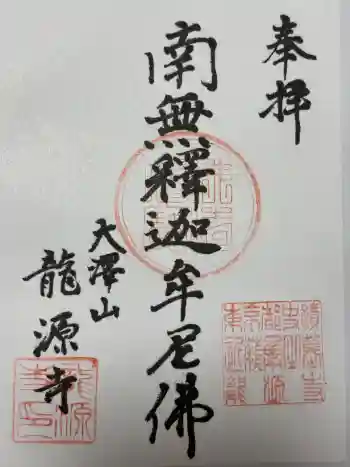 奉拝
南無釋迦牟尼佛
大澤山
龍源寺